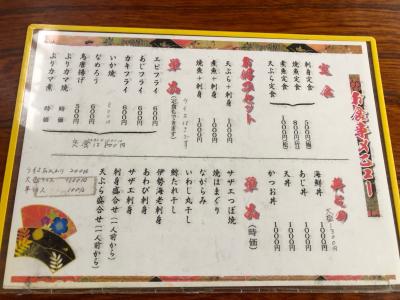 お食事メニュー
定食
刺身定食
天ぷら定食
煮魚定食
焼魚定食
お好みセット
天ぷら+刺身 1000円
煮魚+刺身 1000円
焼魚+刺身 1000円
単品
(定食もできます)
エビフライ 1000円
あじフライ 600円
カキフライ 600円
いか焼 600円
なめろう 600円
鳥唐揚げ 500円
ぶりカマ焼 時価
ぶりカマ煮 時価
丼もの
海鮮丼 1000円
あじ丼 1000円
天丼 1000円
かつお丼 1000円
単品
(時価)
サザエつぼ焼
焼はまぐり
ながらみ
いわし丸干し
鯵たれ干し
伊勢海老刺身
あわび刺身
サザエ刺身
刺身盛合せ(一人前から)
天ぷら盛合せ(一人前から)